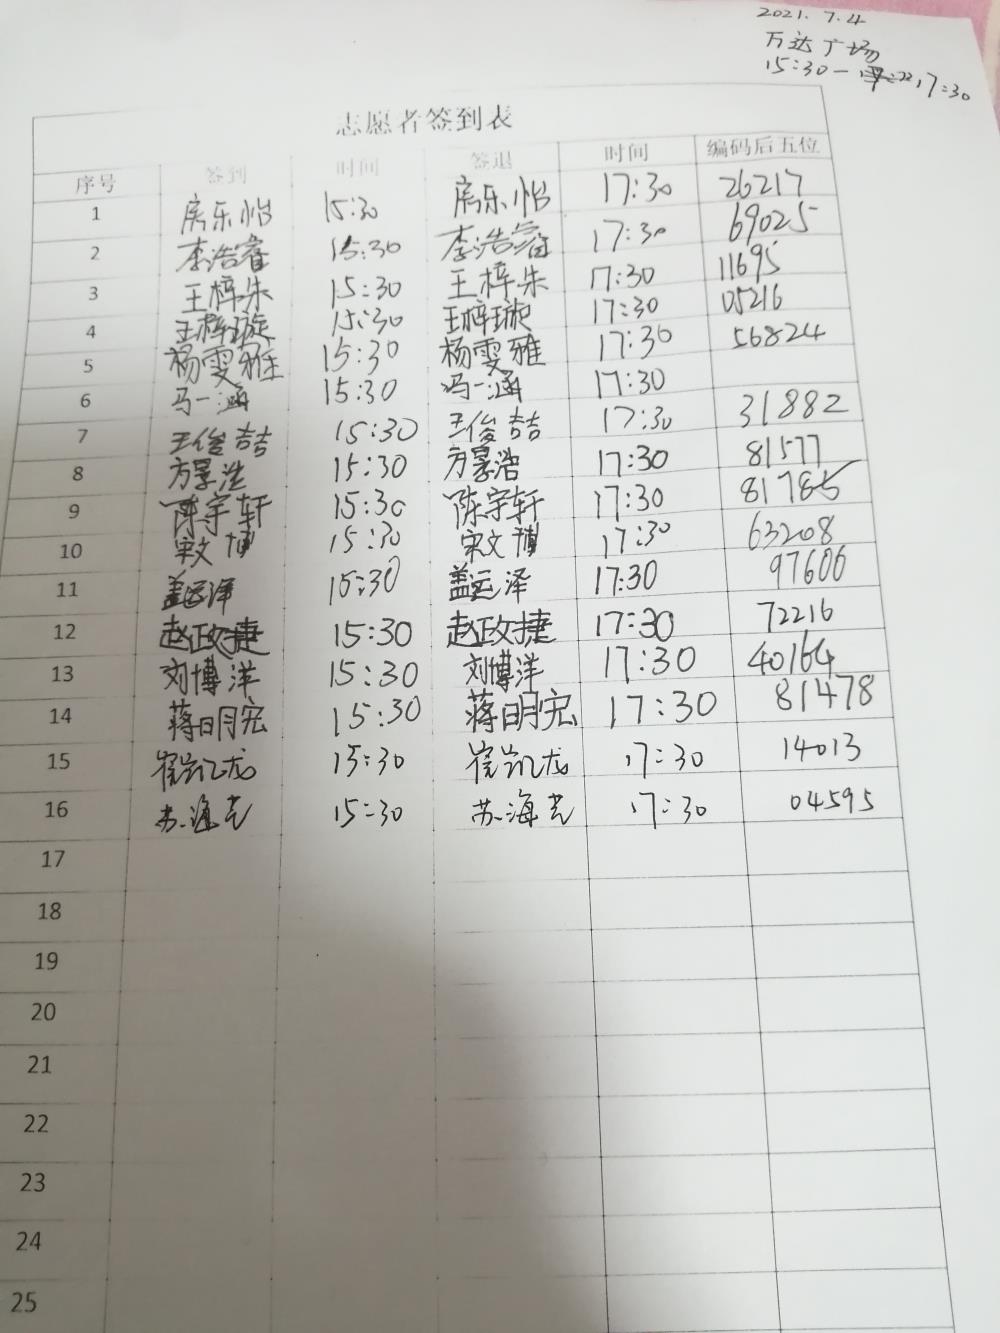 2021. 7.4
万达广场
15:30—17:30
志愿者签到表
序号 签到 时间 签退 时间 编码后五位
1 房乐怡 15:30 房乐怡 17:30 26217
2 李浩睿 15:30 李浩睿 17:30 69025
3 王梓朱 15:30 王梓朱 17:30 11695
4 王梓璇 15:30 王梓璇 17:30 05216
5 杨雯雅 15:30 杨雯雅 17:30 56824
6 冯一涵 15:30 冯一涵 17:30
7 王俊喆 15:30 王俊喆 17:30 31882
8 方景浩 15:30 方景浩 17:30 81577
9 陈宇轩 15:30 陈宇轩 17:30 81785
10 宋文博 15:30 宋文博 17:30 63208
11 盖运泽 15:30 盖运泽 17:30 97606
12 赵政捷 15:30 赵政捷 17:30 72216
13 刘博洋 15:30 刘博洋 17:30 40164
14 蒋明宏 15:30 蒋明宏 17:30 81478
15 崔凯龙 15:30 崔凯龙 17:30 14013
16 苏海芝 15:30 苏海芝 17:30 04595
17
18
19
20
21
22
23
24
25